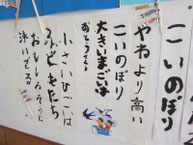 こいのぼり
やねより高い
こいのぼり
大きいまごいは
おとうさん
小さいひごいは
子どもたち
おもしろそうに
泳いでる